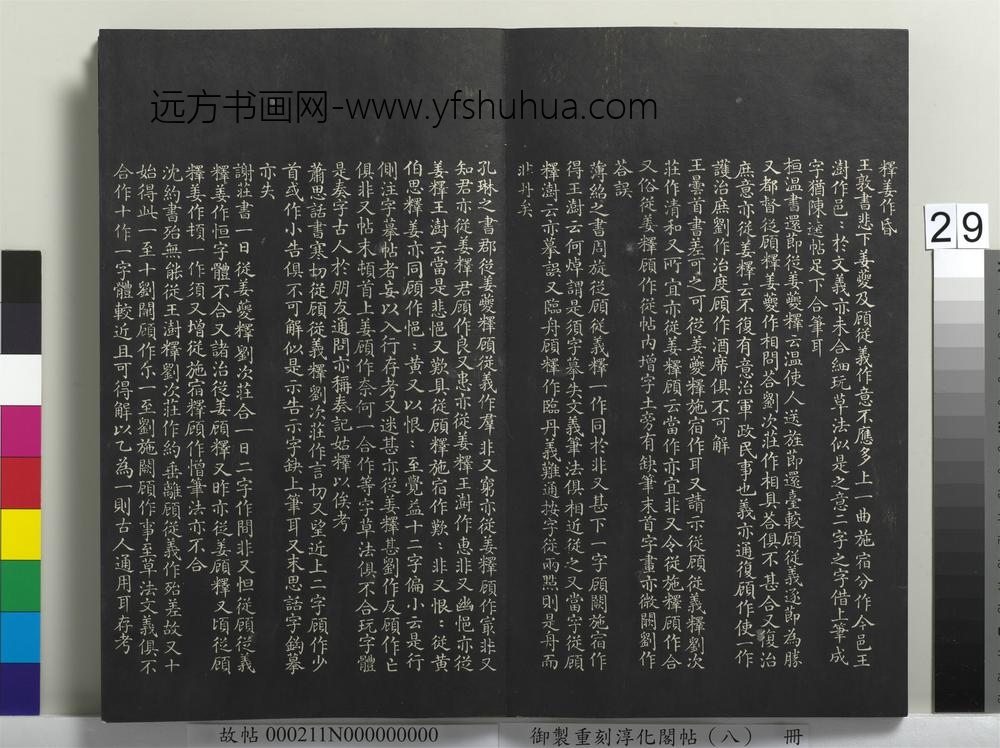 远方书画网-www.yfshuhua.com
釋姜作昏
王敦書悲下姜夔及顧從義作意不應多上一曲施宿分作今邑王
澍作邑:於文義亦未合細玩草法似是之意二字之字借上筆成
字猶陳逵帖足下合筆耳
桓溫書還即從姜夔釋云溫使人送旌節還臺較顧從義逐即為勝
又都督從顧釋姜夔作相問答劉次莊作相具答俱不甚合又復治
庶意亦從姜釋云不復有意治軍政民事也義亦通復顧作使一作
護治庶劉作治度顧作酒席俱不可解
王曇首書差可之可從姜夔釋施宿作耳又請示從顧從義釋劉次
莊作清和又所宜亦從姜釋顧云當作亦宜非又令從施釋顧作合
又俗從姜釋顧作從帖內增字土旁有缺筆末首字畫亦微闕劉作
荅誤
薄紹之書周旋從顧從義釋一作同於非又甚下一字顧闕施宿作
得王澍云何焯謂是須字摹失文義筆法俱相近從之又當字從顧
釋澍云亦摹誤又臨舟顧釋作臨丹義難通按字從兩點則是舟而
非丹矣
孔琳之書郡從姜夔釋顧從義作羣非又窮亦從姜釋顧作寂非又
知君亦從姜釋君顧作良又恵亦從姜釋王澍作恵非又幽悒亦從
姜釋王澍云當是悲悒又歎具從顧釋施宿作歎:非又恨:從黃
伯思釋姜亦同顧作悒:黃又以恨:至覺益十二字偏小云是行
側注字摹帖者妄以入行存考又迷甚亦從姜釋甚劉作反顧作亡
俱非又帖末頓首上姜顧作奈何一合作等字草法俱不合玩字體
是奏字古人於朋友通問亦稱奏記姑釋以俟考
蕭思話書寒切從顧從義釋劉次莊作言切又望近上二字顧作少
首或作小告俱不可解似是示告示字缺上筆耳又末思話字鉤摹
亦失
謝莊書一日從姜夔釋劉次莊合一日二字作問非又怛從顧從義
釋姜作恒字體不合又諸治從姜顧釋又昨亦從姜顧釋又頃從顧
釋姜作頓一作須又增從施宿釋顧作憎筆法亦不合
沈約書殆無能從王澍釋劉次莊作約垂離顧從義作殆差故又十
始得此一至十劉闕顧作尓一至劉施闕顧作事至草法文義俱不
合作十作一字體較近且可得解以乙為一則古人通用耳存考
29
故帖 000211N000000000
御製重刻淳化閣帖（八） 冊